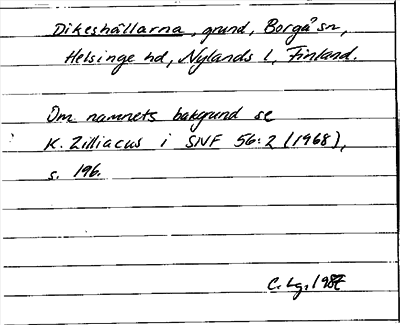 Dikeshällarna, grund, Borgå sn,
Helsinge hd, Nylands l, Finland.
Om namnets bakgrund se
K. Zilliacus i SNF 56:2 (1968),
s. 196.
C. Lg. 1987